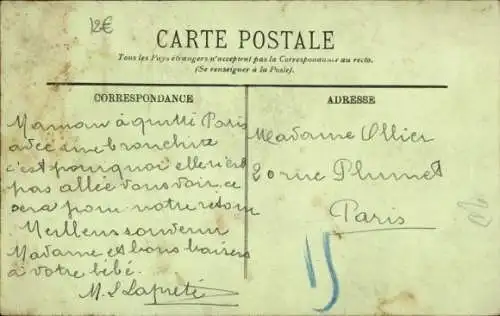 12€
CARTE POSTALE
Tous les Pays étrangers n'acceptent pas la Correspondance au recto.
(Se renseigner à la Poste).
CORRESPONDANCE
Maman a quitté Paris
avec une bronchite
c'est pourquoi elle n'est
pas allée vous voir, ce
sera pour notre retour
Meilleurs souvenirs
Madame et bons baisers
à votre bébé.
M. L Lapreté
ADRESSE
Madame Ollier
20 rue Plumet
Paris
15